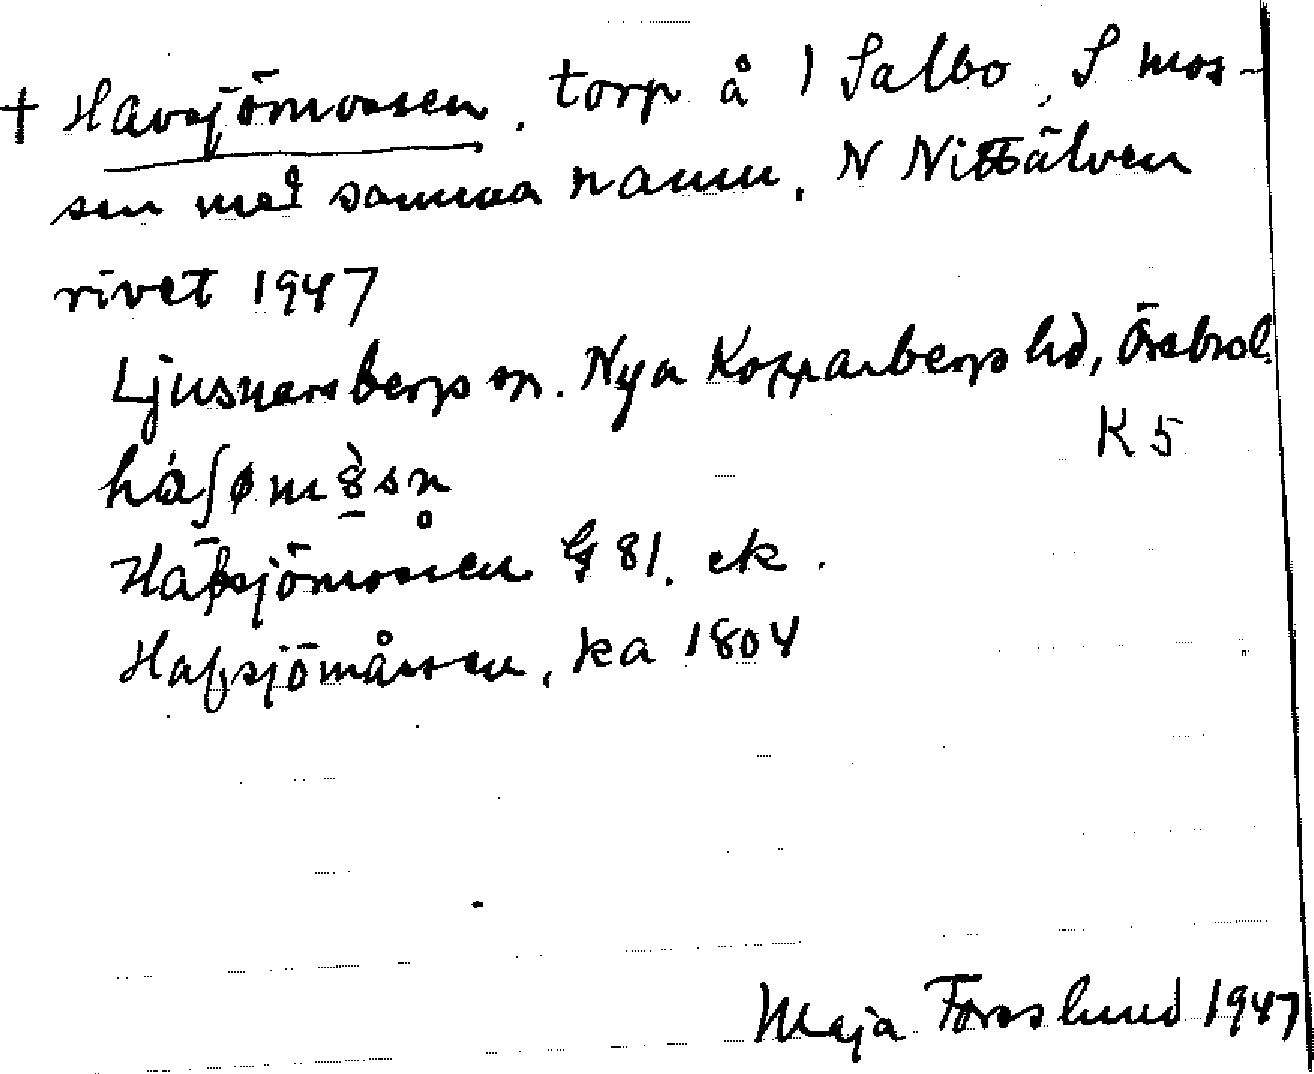 † Havsjömossen, torp å 1 Salbo, S mos-
sen med samma namn, N Nittälven
rivet 1947
Ljusnarsbergs sn. Nya Kopparbergs hd, Örebro l.
K 5
Hafsjömossen G 81. ek.
Hafsjömåssen, ka 1804
Maja Forsslund 1947